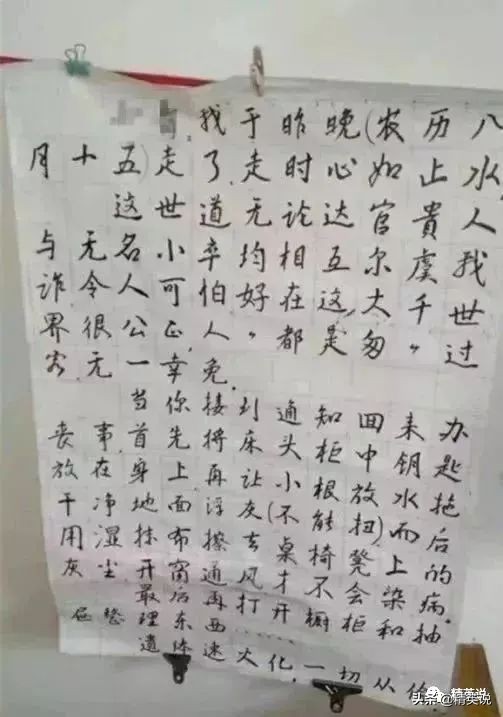 找于昨晚(农历八
月十五)走了,走时心如止水,
这世道无论达官贵人
与无名小卒均相互尔虞我
诈,令人可怕。好在这大千世
界很公正,人“都是匆匆过
客”无一幸免。
当你接到通知回来办
丧事,首先将床头柜中钥匙
放在身上,再让小根放水拖
干净地面浮灰(不能扭)而后
用湿抹布擦去桌椅凳上的
灰尘,开窗通风才不会染病。
最后再打开橱柜和抽
屉整理东西……
遗体速火化,一切从
精英说
头条 @精英说